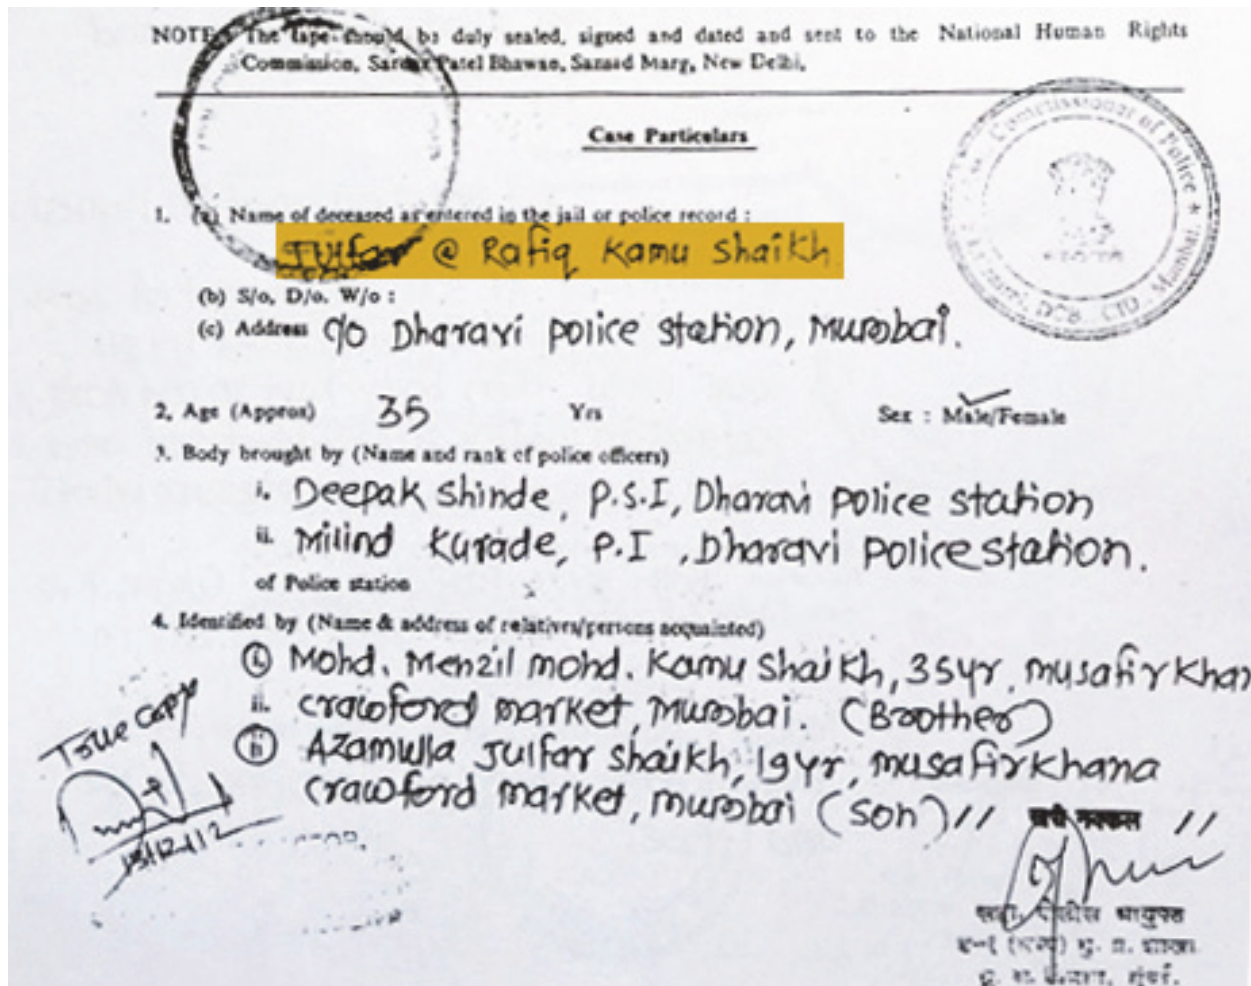 NOTE : The tape should be duly sealed, signed and dated and sent to the National Human Rights
Commission, Sardar Patel Bhawan, Sansad Marg, New Delhi,
Case Particulars
1. (a) Name of deceased as entered in the jail or police record :
Julfar @ Rafiq Kamu Shaikh
(b) S/o, D/o. W/o :
(c) Address C/o Dharavi police station, Mumbai.
2. Age (Approx) 35 Yrs Sex : Male/Female
3. Body brought by (Name and rank of police officers)
i. Deepak Shinde, P.S.I, Dharavi police station
ii. Milind Kurade, P.I, Dharavi police station.
of Police station
4. Identified by (Name & address of relatives/persons acquainted)
i Mohd. Menzil mohd. Kamu Shaikh, 35yr, musafirkhan
ii. crawford market, Mumbai. (Brother)
ii Azamulla Julfar shaikh, 19yr, musafirkhana
crawford market, mumbai (son) //
True Copy
15/12/12
खरी नक्कल //
Commissioner of Police * DCB, CID, Mumbai